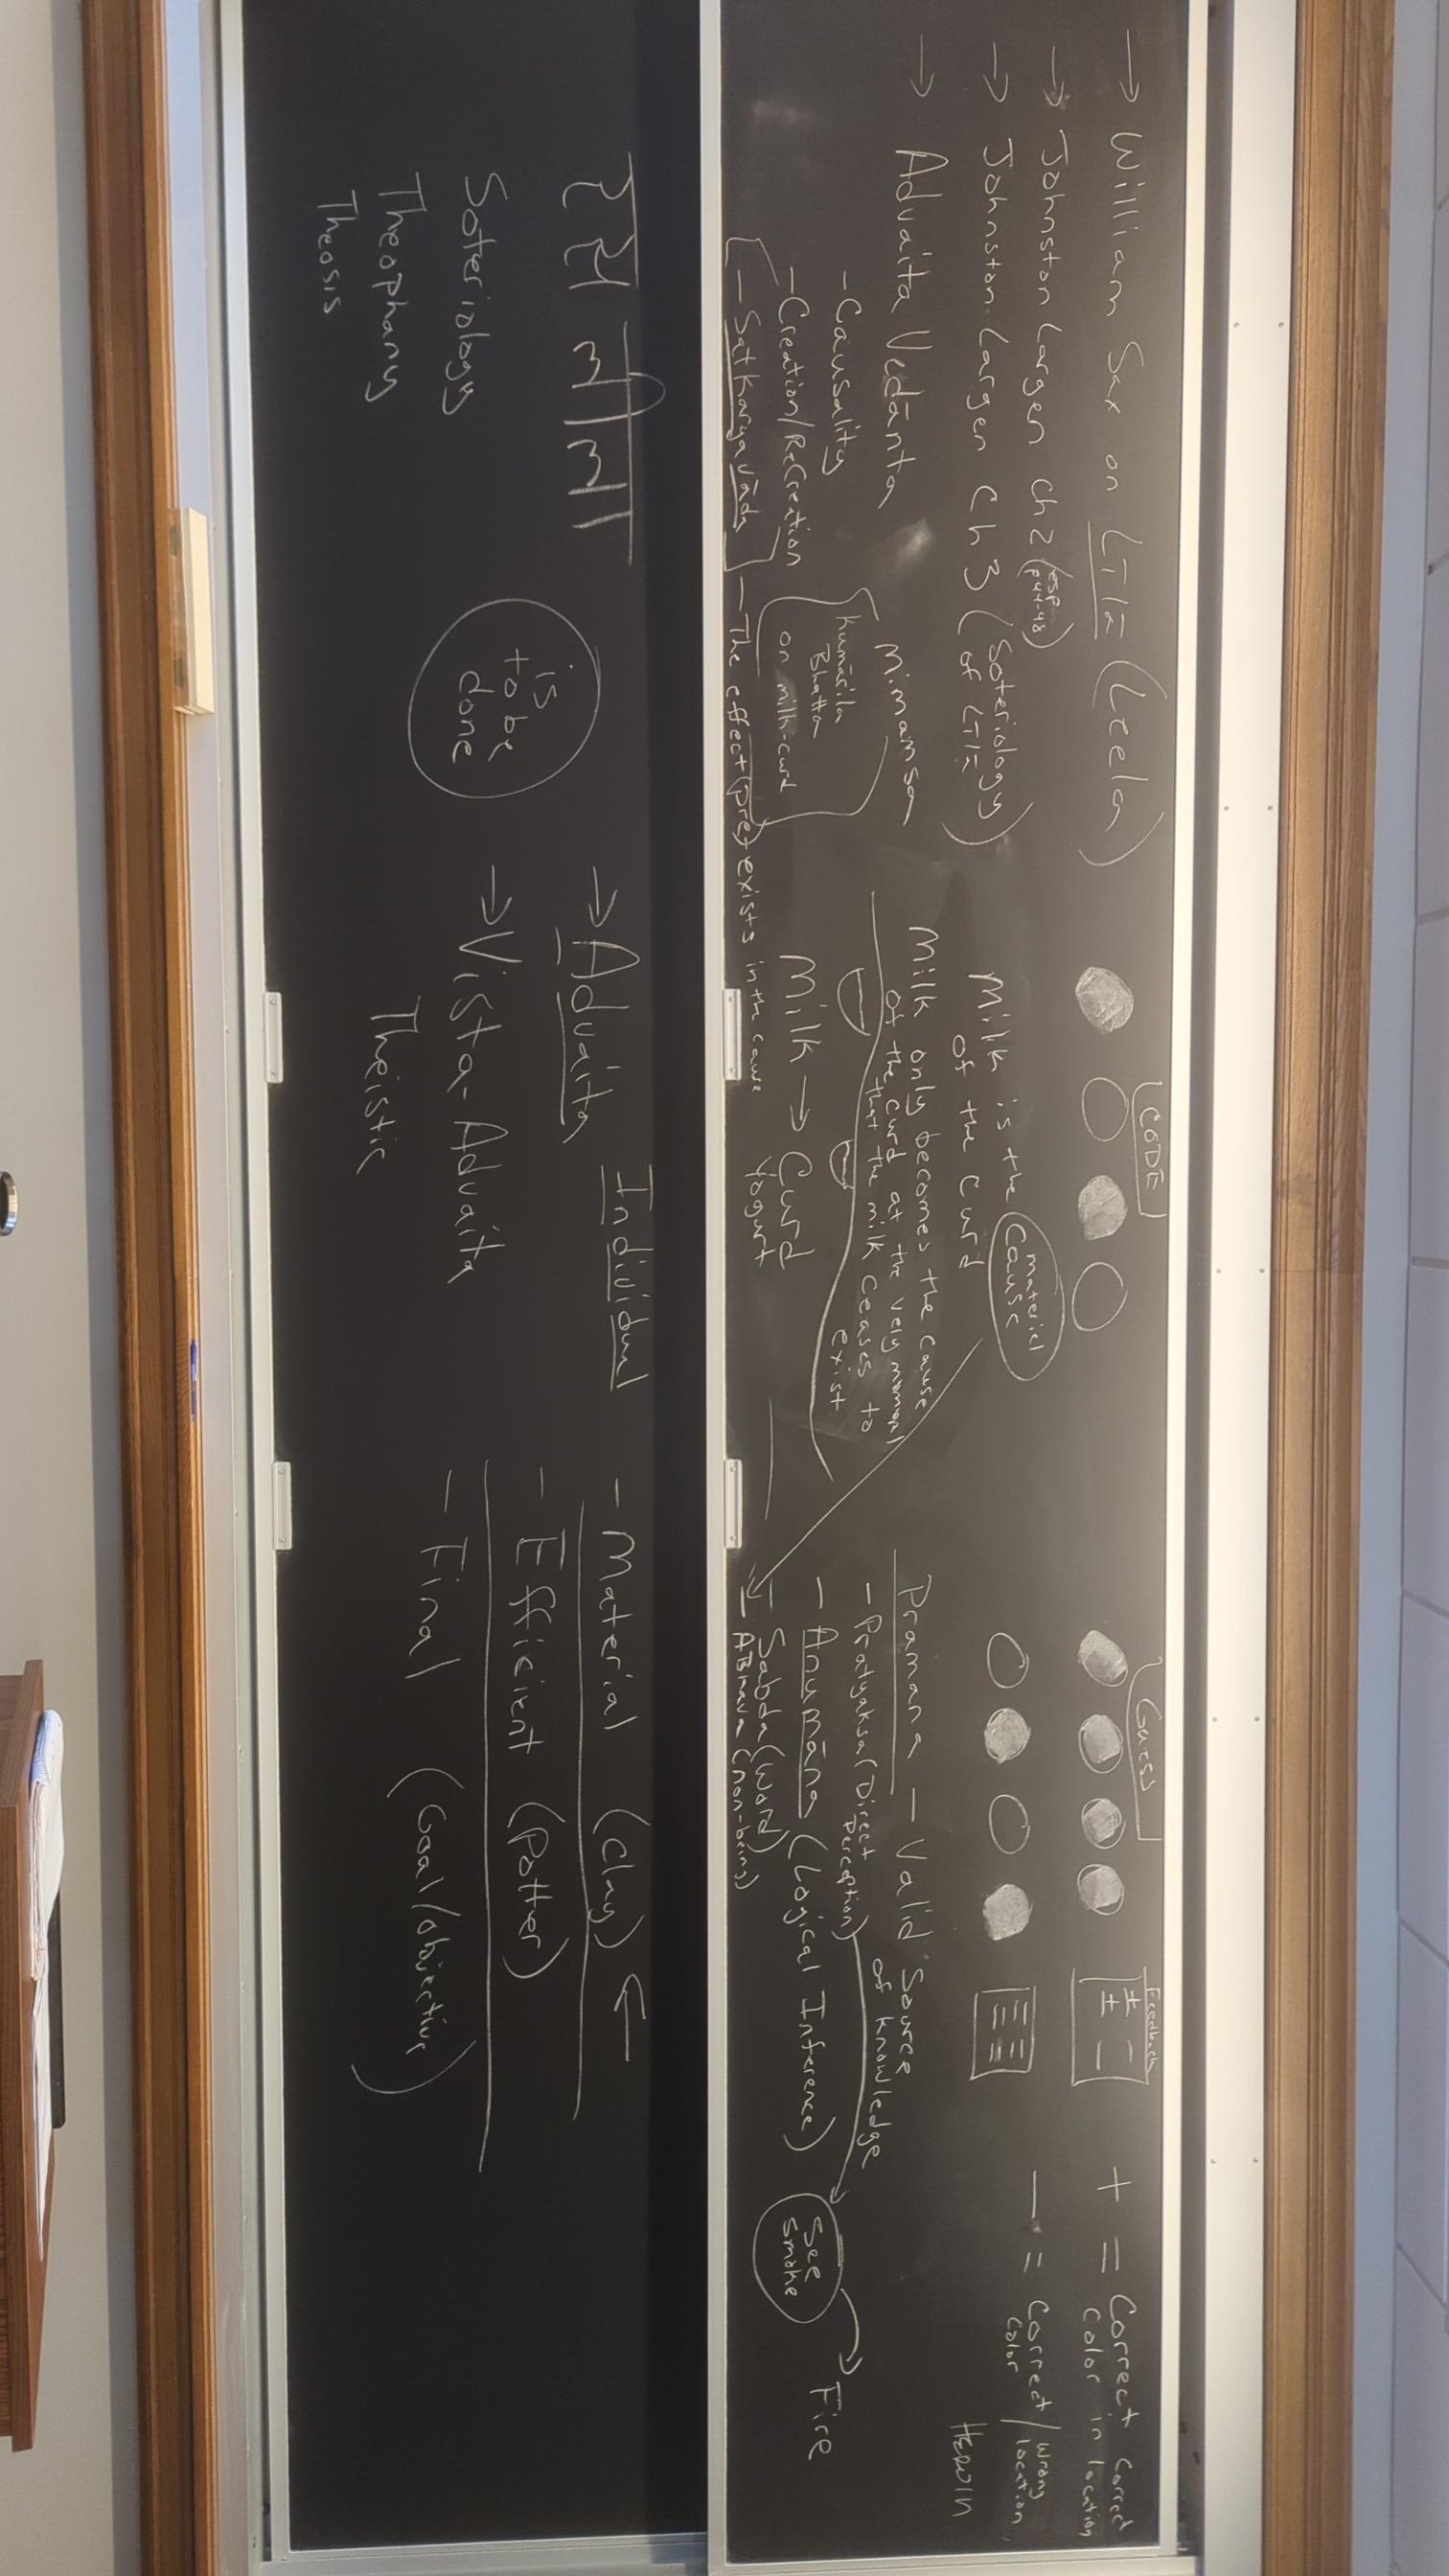 → William Sax on Līlā (Leela)
→ Johnston Largen Ch 2 (esp p44-48)
→ Johnston Largen Ch 3 (Soteriology of Līlā)
→ Advaita Vedānta
- Causality
- Creation/ReCreation
- Satkaryavāda - The effect (pre) exists in the cause
Mimamsa
Kumārila
Bhatta
on milk-curd
CODE
Milk is the material cause
of the Curd
Milk only becomes the cause
of the curd at the very moment
that the milk ceases to
exist
Milk → Curd
Yogurt
Guess
Feedback
+ -
+ -
+ = Correct Color Correct in location
- = Correct Color / Wrong location
HEROIN
Pramana - Valid Source
of knowledge
- Pratyaksa (Direct Perception)
- Anumāna (Logical Inference)
- Sabda (Word)
- ABhava (non-being)
See
Smoke
Fire
रस लीला
Soteriology
Theophany
Theosis
is
to be
done
→ Advaita Individual
→ Vista-Advaita
Theistic
- Material (Clay) ←
- Efficient (Potter)
- Final (Goal/objective)